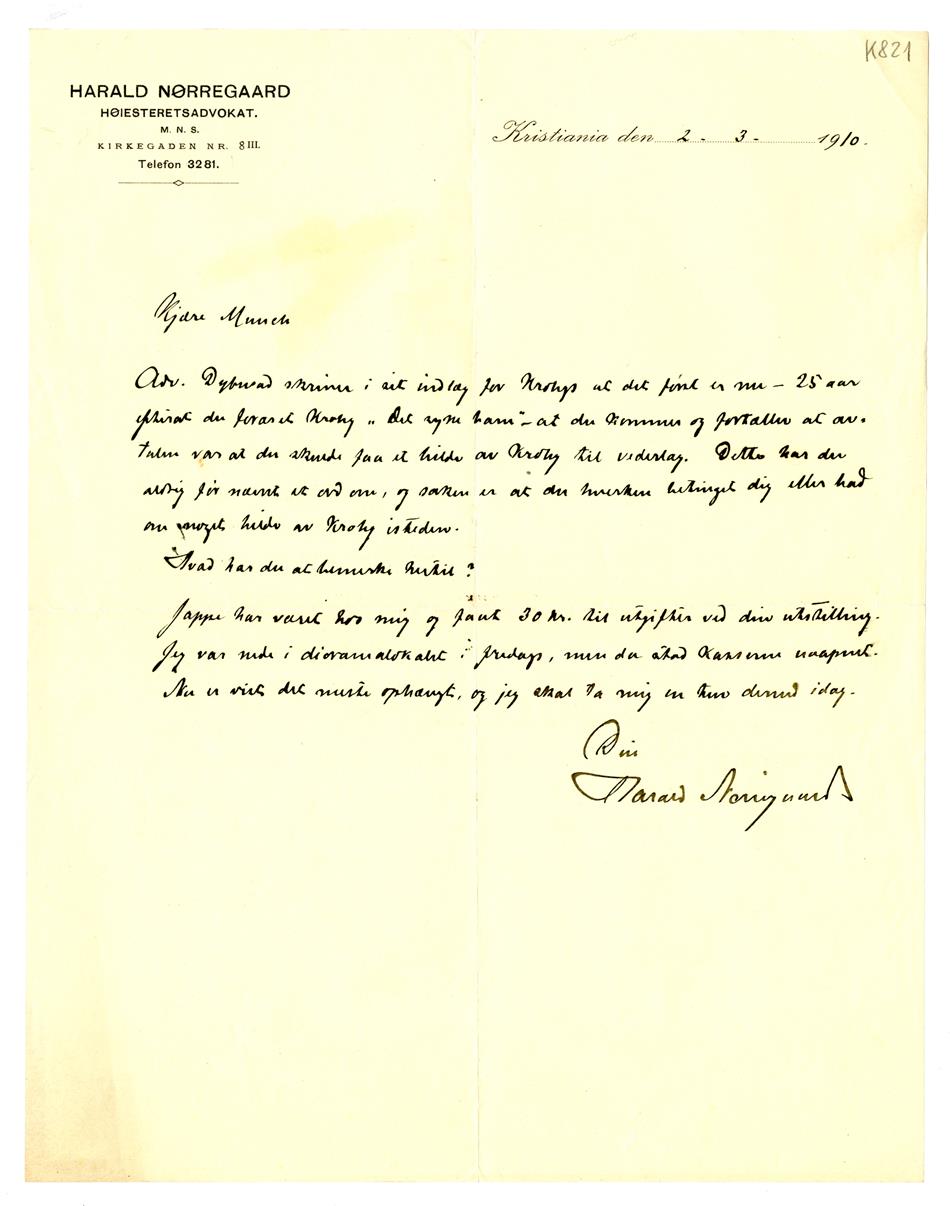 K821
HARALD NØRREGAARD
HØIESTERETSADVOKAT.
M. N. S.
KIRKEGADEN NR. 8 III.
Telefon 3281.
Kristiania den 2 - 3 - 1910.
Kjære Munch
Adv. Dybwad skriver i sit indlæg for Krohgs at det først er nu – 25 aar
efterat du foræret Krohg „Det syke barn" – at du kommer og fortæller at av-
talen var at du skulde faa et billede av Krohg til vederlag. Dette har du
aldrig før nævnt et ord om, og saken er at du hverken betinget dig eller bad
om noget billede av Krohg isteden.
Hvad har du at bemerke hertil?
Jappe har været hos mig og faat 30 kr. til utgifter ved din utstilling.
Jeg var nede i dioramalokalet i fredags, men da stod kasserne uaapnet.
Nu er vist det meste ophængt, og jeg skal ta mig en tur derned idag.
Din
Harald Nørregaard